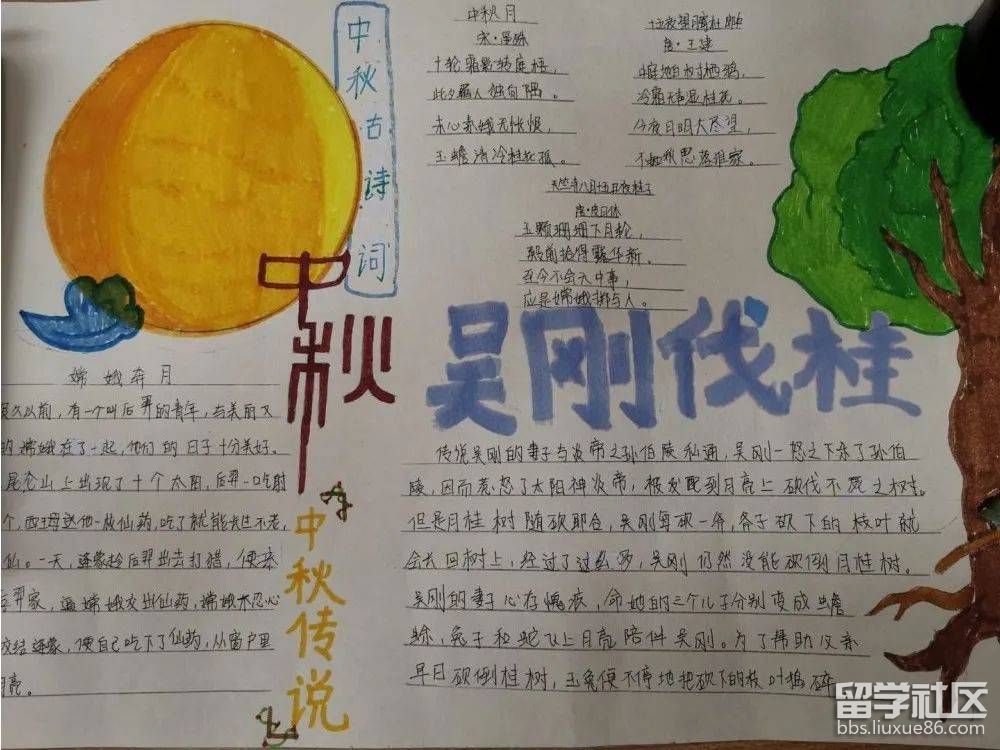 中秋古诗词
中秋月
宋·晏殊
十轮霜影转庭梧，
此夕羁人独向隅。
未必素娥无怅恨，
玉蟾清冷桂花孤。
十五夜望月寄杜郎中
唐·王建
中庭地白树栖鸦，
冷露无声湿桂花。
今夜月明人尽望，
不知秋思落谁家。
天竺寺八月十五日夜桂子
唐·皮日休
玉颗珊珊下月轮，
殿前拾得露华新。
至今不会天中事，
应是嫦娥掷与人。
中秋
吴刚伐桂
嫦娥奔月
久以前，有一个叫后羿的青年，与美丽又
的嫦娥在了一起，他们的日子十分美好。
昆仑山上出现了十个太阳，后羿一吃射
个，西王母送他一枚仙药，吃了就能长过不老，
仙。一天，逢蒙趁后羿出去打猎，便来
后羿家，逼嫦娥交出仙药，嫦娥不忍心
交给逢蒙，便自己吃下了仙药，从窗户里
月亮。
中秋传说
传说吴刚的妻子与炎帝之孙伯陵私通，吴刚一怒之下杀了孙伯
陵，因而惹怒了太阳神炎帝，被发配到月亮上砍伐不死之树。
但是月桂树随砍即合，吴刚每砍一斧，斧子砍下的枝叶就
会长回树上，经过了过么多，吴刚仍然没能砍倒月桂树。
吴刚的妻子心存愧疚，命她的三个儿子分别变成蟾
蜍，兔子和蛇飞上月亮陪伴吴刚。为了帮助父亲
早日砍倒桂树，玉兔便不停地把砍下的枝叶捣碎
留学社区
bbs.liuxue86.com